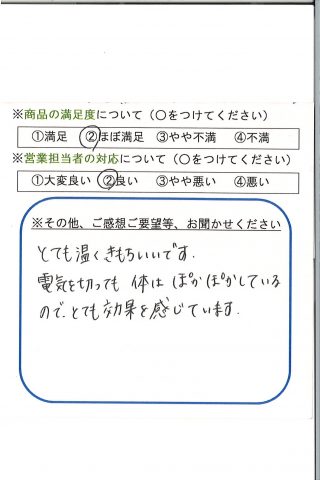 ※商品の満足度について（○をつけてください）
①満足 ②ほぼ満足 ③やや不満 ④不満
※営業担当者の対応について（○をつけてください）
①大変良い ②良い ③やや悪い ④悪い
※その他、ご感想ご要望等、お聞かせください
とても温くきもちいいです.
電気を切っても 体は ぽかぽかしている
ので、とても効果を感じています.